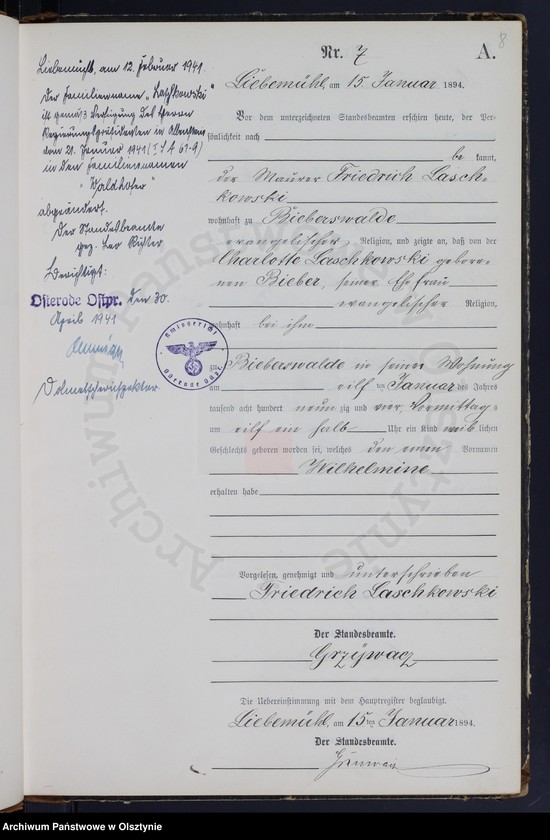 8
Nr. 7 A.
Liebemühl, am 15. Januar 1894.
Vor dem unterzeichneten Standesbeamten erschien heute, der Per-
sönlichkeit nach
be kannt,
der Maurer Friedrich Lasch-
kowski
wohnhaft zu Bieberswalde
evangelischer Religion, und zeigte an, daß von der
Charlotte Laschkowski gebore-
nen Bieber, seiner Ehefrau
evangelischer Religion,
wohnhaft bei ihm
zu Bieberswalde in seiner Wohnung
am eilf ten Januar des Jahres
tausend acht hundert neun zig und vier, Vormittag s
um eilf ein halb Uhr ein Kind weib lichen
Geschlechts geboren worden sei, welches den einen Vornamen
Wilhelmine
erhalten habe
Vorgelesen, genehmigt und unterschrieben
Friedrich Laschkowski
Der Standesbeamte.
Grzywacz
Die Uebereinstimmung mit dem Hauptregister beglaubigt.
Liebemühl, am 15ten Januar 1894.
Der Standesbeamte.
Liebemühl, am 12. Februar 1941.
Der Familienname "Laschkowski"
ist gemäß Verfügung des Herrn
Regierungspräsidenten in Allenstein
vom 21. Januar 1941
in den Familiennamen
"Waldhofer"
abgeändert.
Der Standesbeamte
gez. Leo Richter
Berichtigt:
Osterode Ostpr. den 30.
April 1941
Amtsgericht
Osterode Ostpr.
Archiwum Państwowe w Olsztynie
Archiwum Państwowe w Olsztynie